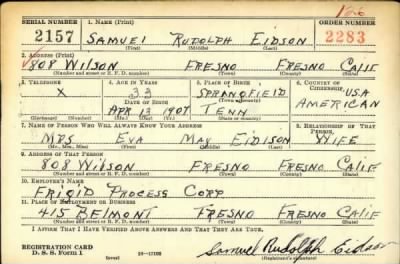 166
SERIAL NUMBER 1. NAME (Print) ORDER NUMBER
2157 SAMUEL RUDOLPH EIDSON 2283
(First) (Middle) (Last)
2. ADDRESS (Print)
808 WILSON FRESNO FRESNO CALIF
(Number and street or R. F. D. number) (Town) (County) (State)
3. TELEPHONE 4. AGE IN YEARS 5. PLACE OF BIRTH 6. COUNTRY OF CITIZENSHIP
X 33 SPRINGFIELD USA
DATE OF BIRTH (Town or county)
APR 13 1907 TENN AMERICAN
(Exchange) (Number) (Mo.) (Day) (Yr.) (State or country)
7. NAME OF PERSON WHO WILL ALWAYS KNOW YOUR ADDRESS 8. RELATIONSHIP OF THAT PERSON
MRS EVA MAY EIDSON WIFE
(Mr., Mrs., Miss) (First) (Middle) (Last)
9. ADDRESS OF THAT PERSON
808 WILSON FRESNO FRESNO CALIF
(Number and street or R. F. D. number) (Town) (County) (State)
10. EMPLOYER'S NAME
FRIGID PROCESS CORP
11. PLACE OF EMPLOYMENT OR BUSINESS
415 BELMONT FRESNO FRESNO CALIF
(Number and street or R. F. D. number) (Town) (County) (State)
I AFFIRM THAT I HAVE VERIFIED ABOVE ANSWERS AND THAT THEY ARE TRUE.
REGISTRATION CARD
D. S. S. Form 1 Samuel Rudolph Eidson
(Registrant's signature)